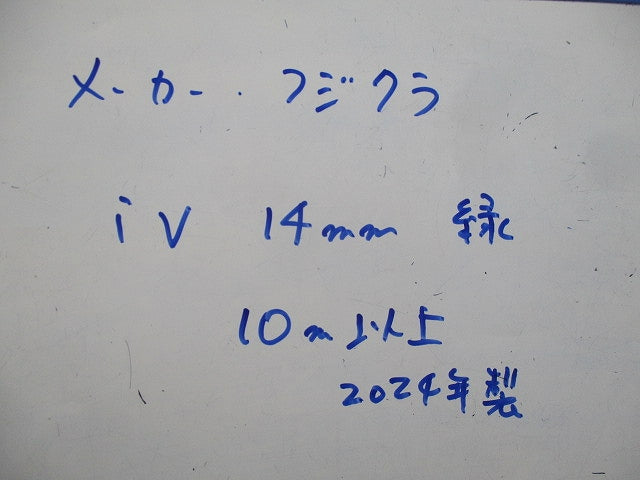 メーカー・フジクラ
iV 14mm 緑
10m以上
2024年製